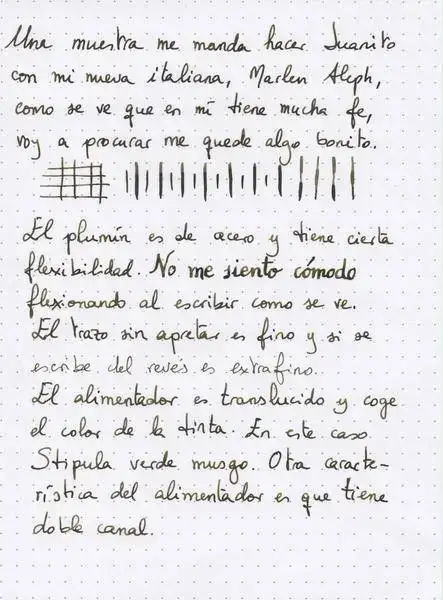 Una muestra me manda hacer Juanito
con mi nueva italiana, Marlen Aleph,
como se ve que en mí tiene mucha fe,
voy a procurar me quede algo bonito.
El plumín es de acero y tiene cierta
flexibilidad. No me siento cómodo
flexionando al escribir como se ve.
El trazo sin apretar es fino y si se
escribe del revés es extrafino.
El alimentador es translucido y coge
el color de la tinta. En este caso
Stipula verde musgo. Otra caracte-
rística del alimentador es que tiene
doble canal.